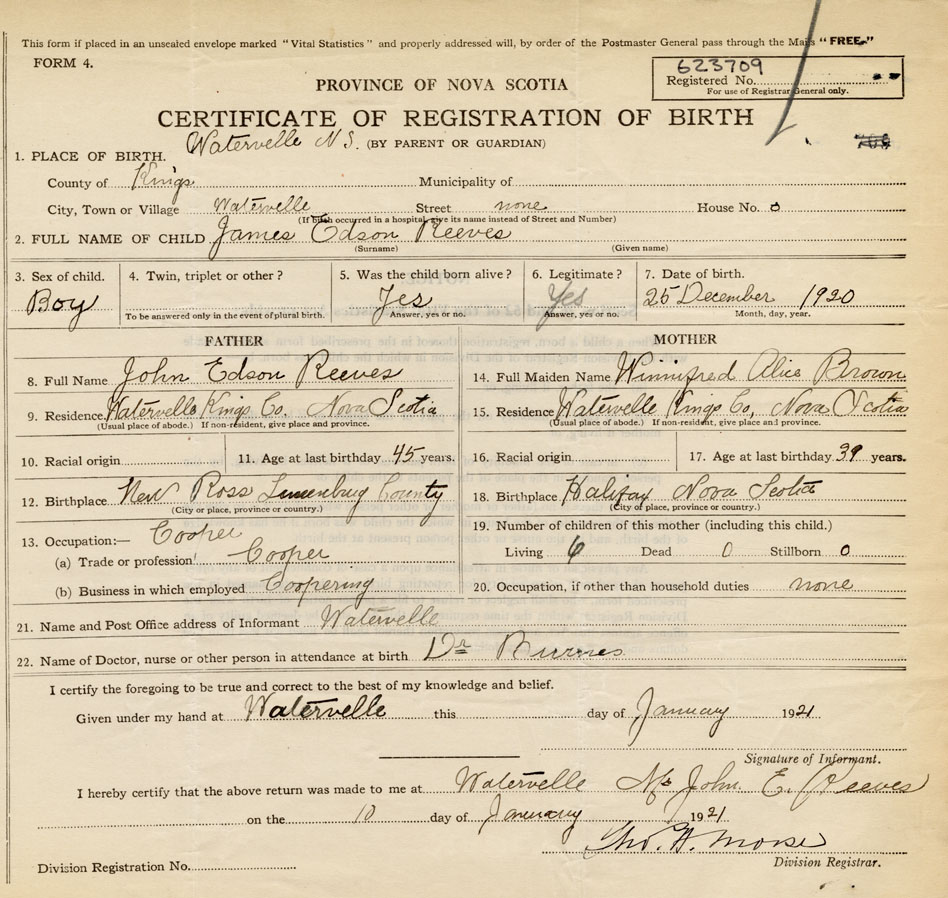 This form if placed in an unsealed envelope marked "Vital Statistics" and properly addressed will, by order of the Postmaster General pass through the Mails "FREE."
FORM 4.
623709
Registered No.
For use of Registrar General only.
PROVINCE OF NOVA SCOTIA
CERTIFICATE OF REGISTRATION OF BIRTH
Watervelle N S. (BY PARENT OR GUARDIAN)
1. PLACE OF BIRTH.
County of Kings Municipality of
City, Town or Village Watervelle Street none House No. 0
(If birth occurred in a hospital, give its name instead of Street and Number)
2. FULL NAME OF CHILD James Edson Reeves
(Surname) (Given name)
3. Sex of child. 4. Twin, triplet or other? 5. Was the child born alive? 6. Legitimate? 7. Date of birth.
Boy Yes Yes 25 December 1920
To be answered only in the event of plural birth. Answer, yes or no. Answer, yes or no. Month, day, year.
FATHER MOTHER
8. Full Name John Edson Reeves 14. Full Maiden Name Winnifred Alice Brown
9. Residence Watervelle Kings Co. Nova Scotia 15. Residence Watervelle Kings Co, Nova Scotia
(Usual place of abode.) If non-resident, give place and province. (Usual place of abode.) If non-resident, give place and province.
10. Racial origin 11. Age at last birthday 45 years. 16. Racial origin 17. Age at last birthday 39 years.
12. Birthplace New Ross Lunenburg County 18. Birthplace Halifax Nova Scotia
(City or place, province or country.) (City or place, province or country.)
13. Occupation:— Cooper 19. Number of children of this mother (including this child.)
(a) Trade or profession Cooper Living 6 Dead 0 Stillborn 0
(b) Business in which employed Coopering 20. Occupation, if other than household duties none
21. Name and Post Office address of Informant Watervelle
22. Name of Doctor, nurse or other person in attendance at birth Dr Burnes
I certify the foregoing to be true and correct to the best of my knowledge and belief.
Given under my hand at Watervelle this day of January 1921
Signature of Informant.
I hereby certify that the above return was made to me at Watervelle John E. Reeves
on the 10 day of January 1921
Tho. H. Morse
Division Registration No. Division Registrar.